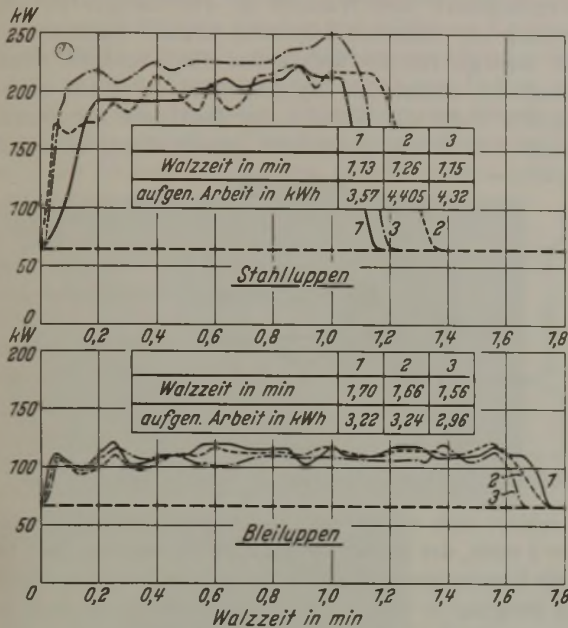 kW
250
200
150
100
50
0
1 2 3
Walzzeit in min 1,13 1,26 1,15
aufgen. Arbeit in kWh 3,57 4,405 4,32
1 3 2
Stahlluppen
0,2 0,4 0,6 0,8 1,0 1,2 1,4 1,6 1,8
kW
200
150
100
50
0
1 2 3
Walzzeit in min 1,70 1,66 1,56
aufgen. Arbeit in kWh 3,22 3,24 2,96
2 1
3
Bleiluppen
0,2 0,4 0,6 0,8 1,0 1,2 1,4 1,6 1,8
Walzzeit in min